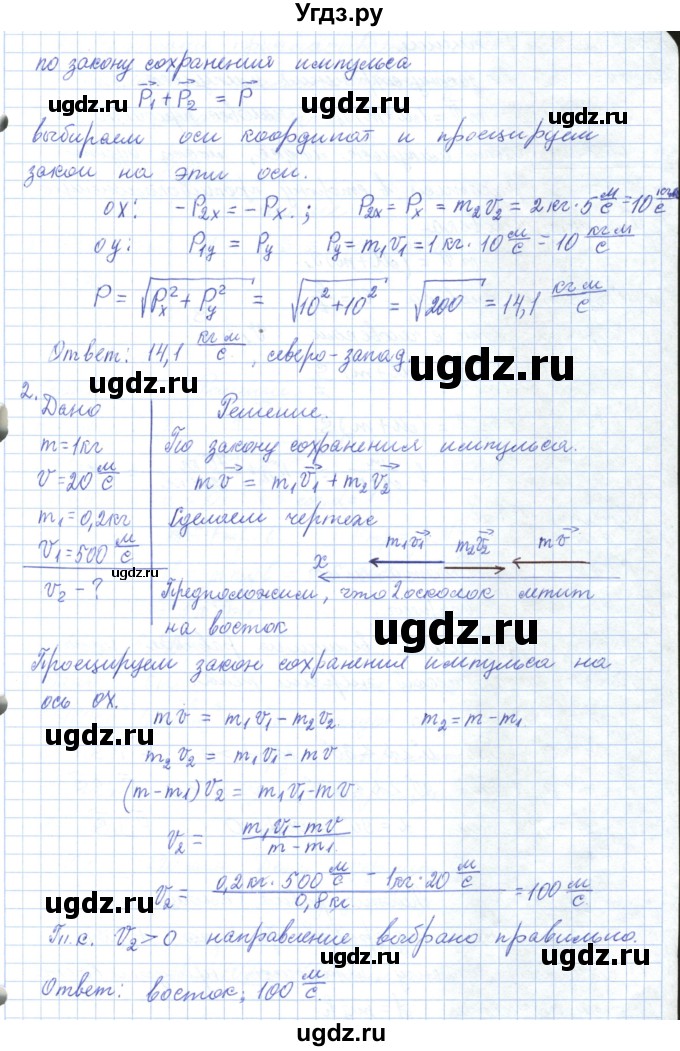 Угдз.ру
по закону сохранения импульса
P₁ + P₂ = P
ugdz.ru ugdz.ru ugdz.ru
выбираем оси координат и проецируем
закон на эти оси.
ox: -P₂ₓ = -Pₓ.; P₂ₓ = Pₓ = m₂v₂ = 2кг·5 м/с = 10 кг м/с
oy: P₁y = Py Py = m₁v₁ = 1кг·10 м/с = 10 кг м/с
ugdz.ru
P = √(Pₓ² + Py²) = √(10² + 10²) = √200 = 14,1 кг м/с
Ответ: 14,1 кг м/с, северо-запад.
ugdz.ru ugdz.ru
2. Дано Решение.
m = 1кг По закону сохранения импульса.
v = 20 м/с mv = m₁v₁ + m₂v₂
ugdz.ru
m₁ = 0,2кг Сделаем чертеж
v₁ = 500 м/с x m₁v₁ m₂v₂ mv
ugdz.ru
v₂ - ? Предположим, что 2 осколок летит
на восток
ugdz.ru
Проецируем закон сохранения импульса на
ось ox.
mv = m₁v₁ - m₂v₂ m₂ = m - m₁
ugdz.ru
m₂v₂ = m₁v₁ - mv
ugdz.ru
(m - m₁)v₂ = m₁v₁ - mv
v₂ = (m₁v₁ - mv)/(m - m₁)
ugdz.ru ugdz.ru
v₂ = (0,2кг·500 м/с - 1кг·20 м/с)/0,8кг = 100 м/с
ugdz.ru
Т.к. v₂ > 0 направление выбрано правильно.
ugdz.ru
Ответ: восток; 100 м/с.
ugdz.ru
ugdz.ru